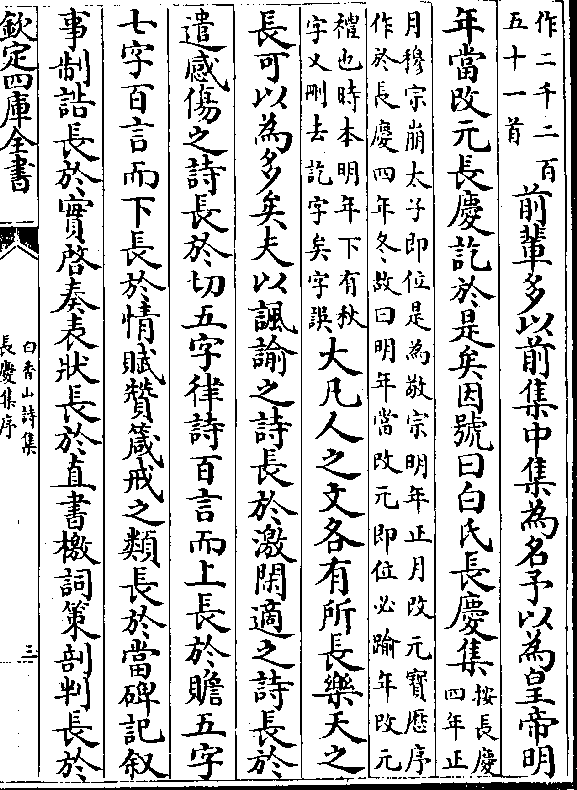 作二千二百
五十一首
前輩多以前集中集為名予以為皇帝明
年當改元長慶訖於是矣因號曰白氏長慶集
按長慶
四年正
月穆宗崩太子即位是為敬宗明年正月改元寶應序
作於長慶四年冬故曰明年當改元即位必踰年改元
禮也時本明年下有秋
字又刪去訖字矣字誤
大凡人之文各有所長樂天之
長可以為多矣夫以諷諭之詩長於激閑適之詩長於
遣感傷之詩長於切五字律詩百言而上長於贍五字
七字百言而下長於情賦贊箴戒之類長於當碑記叙
事制誥長於實啓奏表狀長於直書檄詞策剖判長於
欽定四庫全書
白香山詩集
長慶集序
三